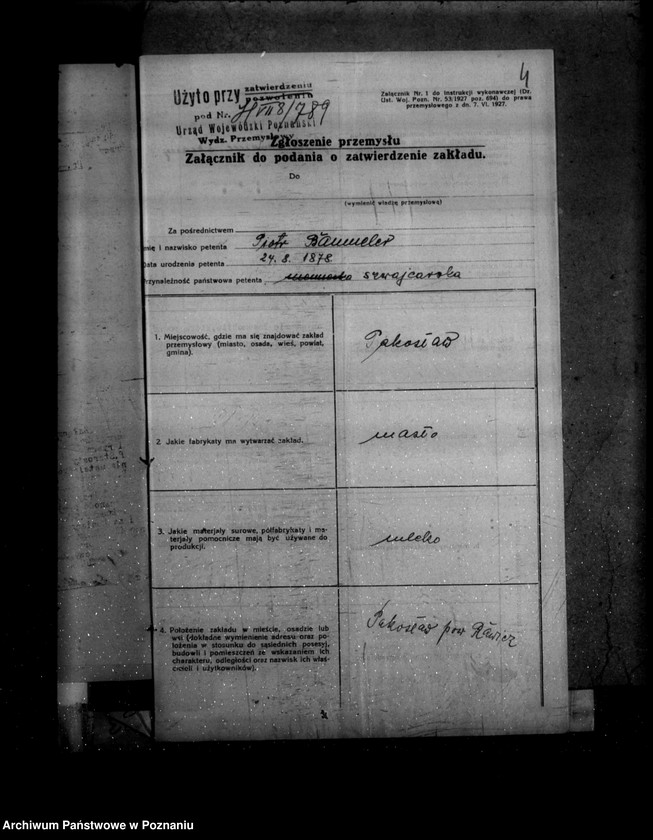 4
Załącznik Nr. 1 do instrukcji wykonawczej (Dz.
Ust. Woj. Pozn. Nr. 53/1927 poz. 694) do prawa
przemysłowego z dn. 7. VI. 1927.
Użyto przy zatwierdzeniu
pozwolenia
pod Nr.
Urząd Wojewódzki Poznański
Wydz. Przemysłowy
Zgłoszenie przemysłu
Załącznik do podania o zatwierdzenie zakładu.
Do
(wymienić władzę przemysłową)
Za pośrednictwem
Imię i nazwisko petenta Piotr Bäumeler
Data urodzenia petenta 24. 8. 1878
Przynależność państwowa petenta szwajcarska
1. Miejscowość, gdzie ma się znajdować zakład
przemysłowy (miasto, osada, wieś, powiat,
gmina).
Pakosław
2. Jakie fabrykaty ma wytwarzać zakład.
masło
3. Jakie materjały surowe, półfabrykaty i ma-
terjały pomocnicze mają być używane do
produkcji.
mleko
4. Położenie zakładu w mieście, osadzie lub
wsi (dokładne wymienienie adresu oraz po-
łożenia w stosunku do sąsiednich posesyj),
budowli i pomieszczeń ze wskazaniem ich
charakteru, odległości oraz nazwisk ich właś-
cicieli i użytkowników).
Pakosław pow Rawicz
Archiwum Państwowe w Poznaniu